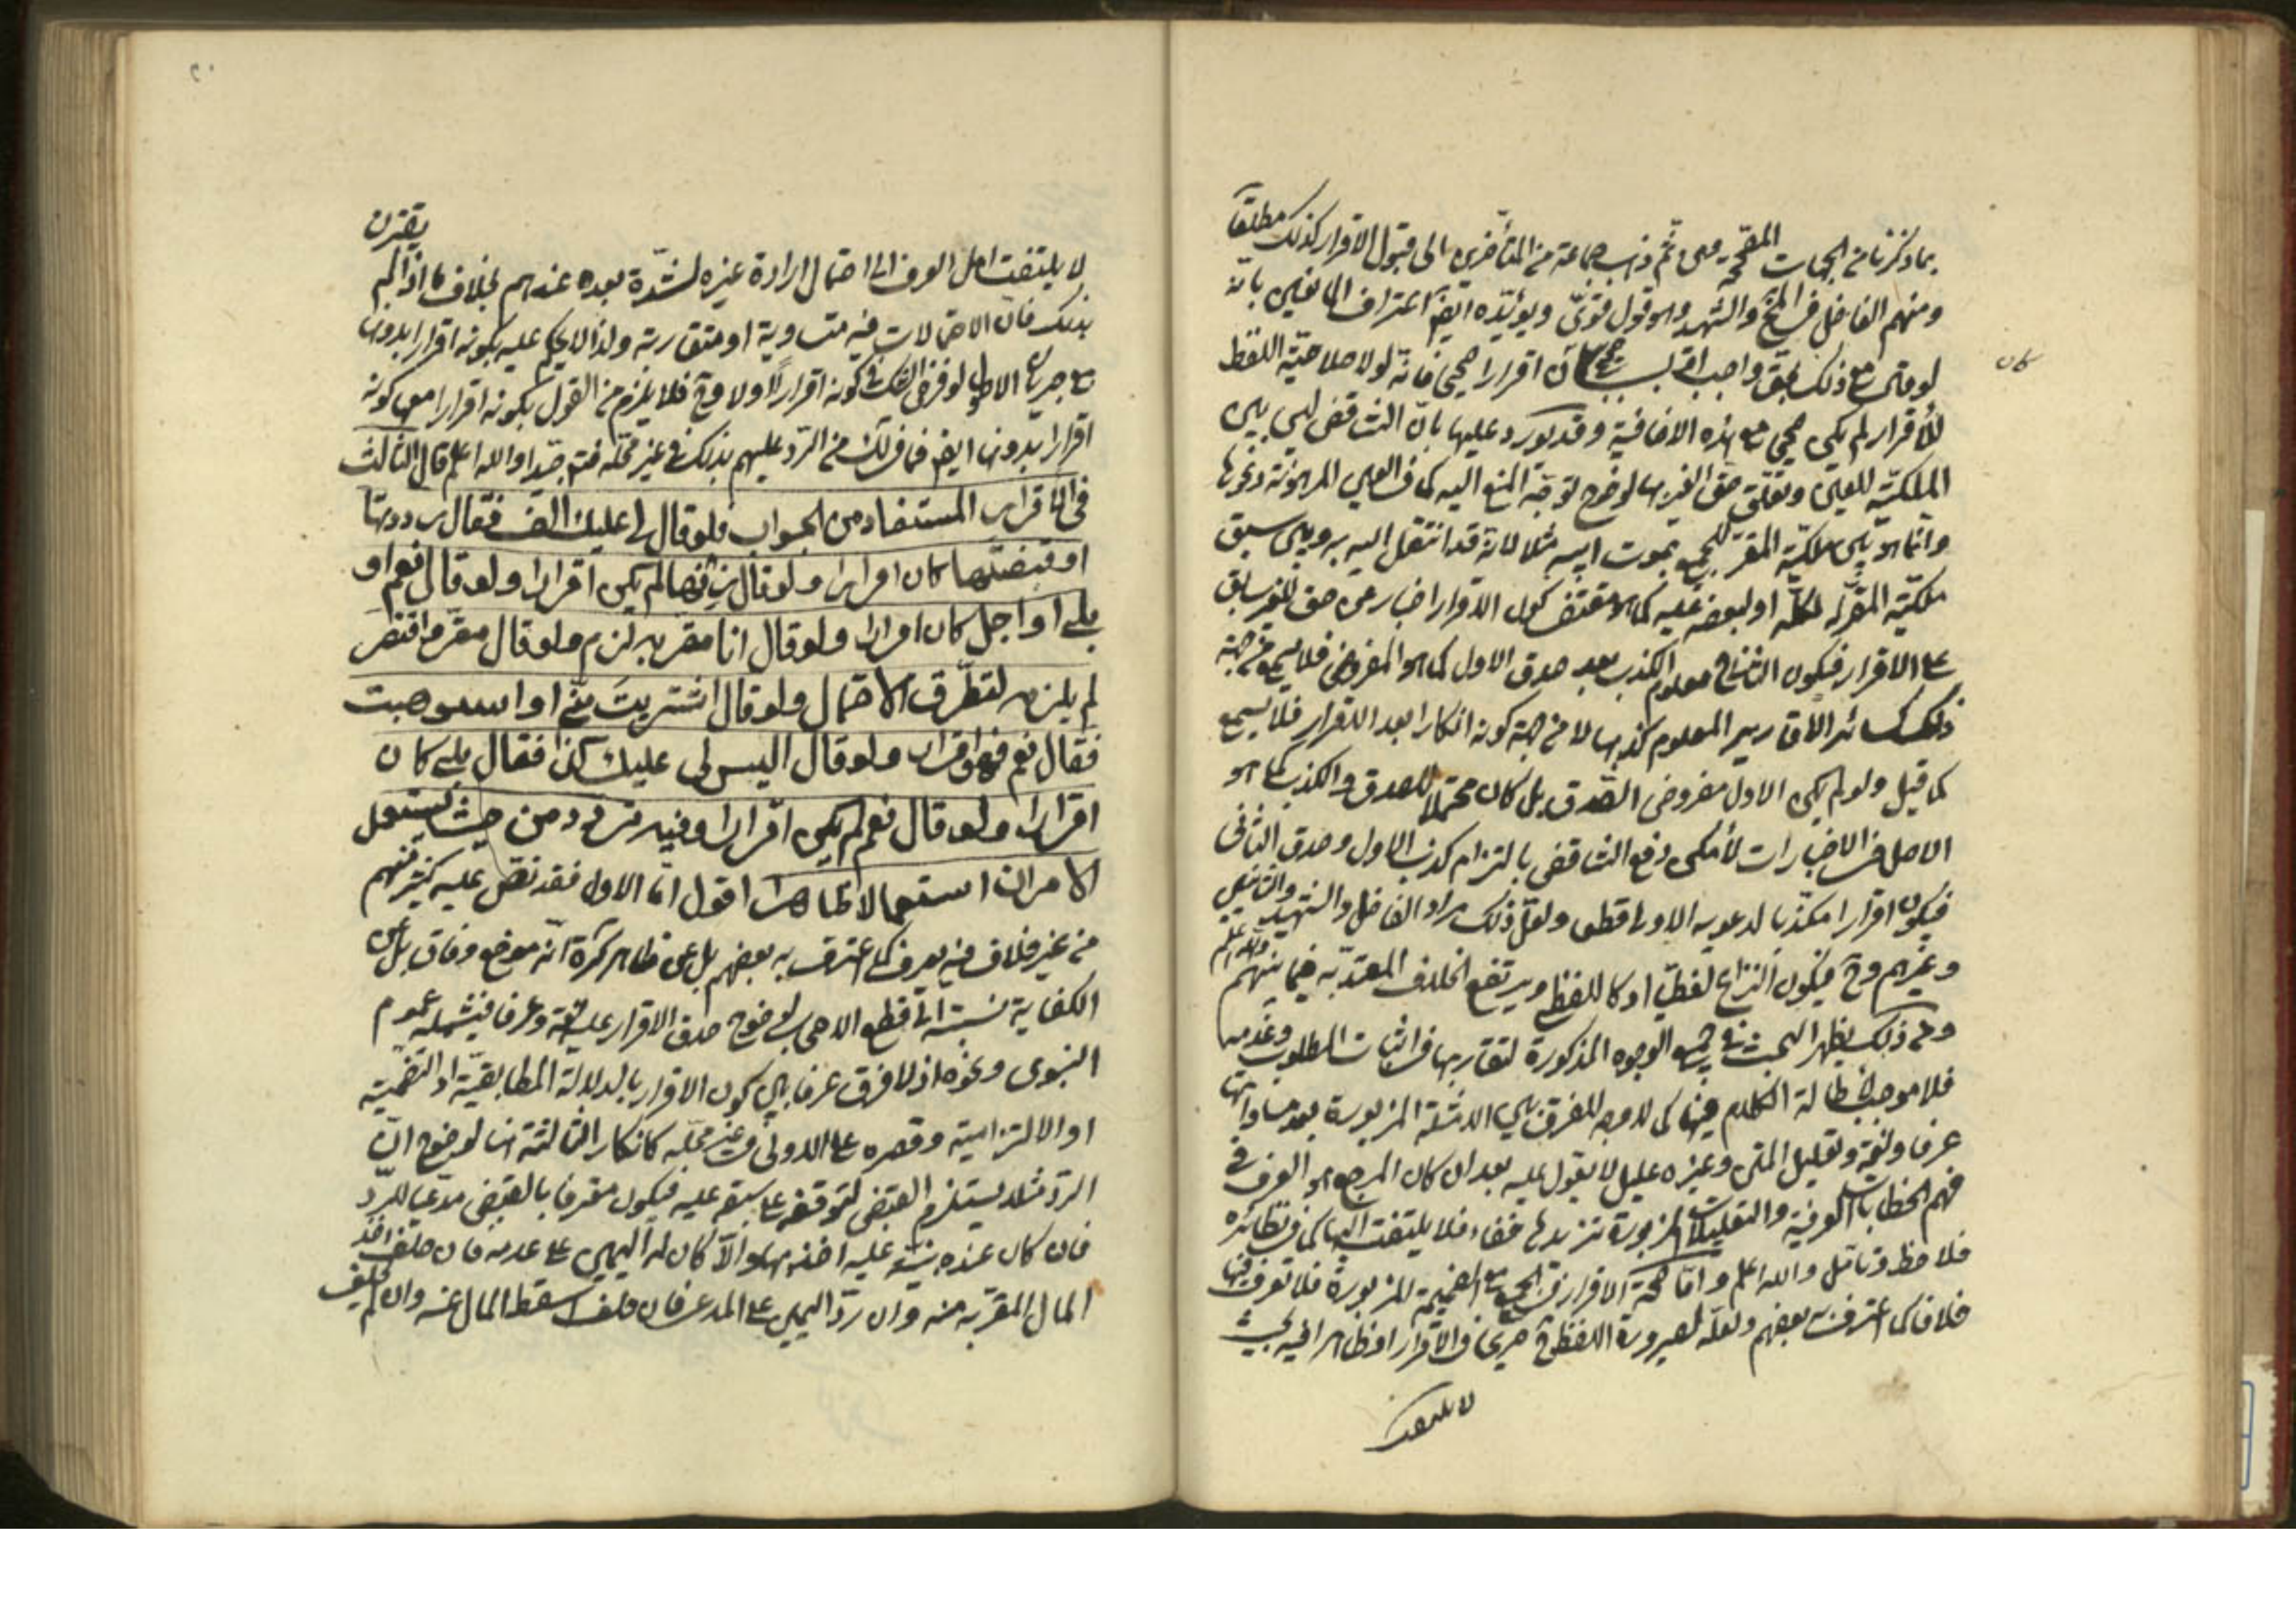 بما ذكرنا من الجهات المصححة ومن ثم ذهب جماعة من المتأخرين الى قبول الاقرار كذلك مطلقا
ومنهم الفاضل في والشهيد وهو قول قوى ويؤيده ايضا اعتراف المانعين بانه
لو قال مع ذلك بحق واجب او بسبب صحيح كان اقرارا صحيحا فانه لولا صلاحية اللفظ
كان
للاقرار لم يكن صحيحا مع هذه الاضافة وقد يورد عليها بان التناقض ليس بين
الملكية للعين وتعلق حق الغير بها لوضوح توجه المنع اليه كما في العين المرهونة ونحوها
وانما هو بين ملكية المقر للجميع بموت ابيه مثلا لانه قد انتقل اليه به وبين سبق
ملكية المقر له لكله او لبعضه عليه كما هو مقتضى كون الاقرار اخبار عن حق للغير سابق
على الاقرار فيكون الثاني معلوم الكذب بعد صدق الاول كما هو المفروض فلا يسمع من جهة
ذلك كسائر الاقارير المعلوم كذبها لا من جهة كونه انكارا بعد الاقرار فلا يسمع
كما قيل ولو لم يكن الاول مفروض الصدق بل كان محتملا للصدق والكذب كما هو
الاصل في الاخبارات لأمكن دفع التناقض بالتزام كذب الاول وصدق الثاني
فيكون اقرارا مكذبا لدعويه الاولى قطعا ولعل ذلك مراد الفاضل والشهيد
وغيرهم وح فيكون النزاع لفظيا او كاللفظى ويرتفع الخلاف المعتد به فيما بينهم والله اعلم
ومن ذلك يظهر البحث في الوجوه المذكورة لتقاربها في اثبات المطلوب وعدمه
فلا موجب لاطالة الكلام فيها كما لا وجه للفرق بين الامثلة المزبورة بعد مساواتها
عرفا ولغة وتعليل المتن وغيره عليل لا يعول عليه بعد ان كان المرجع هو العرف في
فهم الخطابات العرفية والتعليلات المزبورة تزيدها خفاء فلا يلتفت اليها كما في نظائره
فلاحظ وتامل والله اعلم واما صحة الاقرار في الجميع مع الضميمة المزبورة فلا نعرف فيها
خلافا كما اعترف به بعضهم ولعله لصيرورة اللفظ ح صريحا في الاقرار او ظاهرا فيه بحيث
لا يلتفت
يقترن
لا يلتفت اهل العرف الى احتمال ارادة غيره لشدة بعده عندهم بخلاف ما اذا لم
بذلك فان الاحتمالات فيه متساوية او متقاربة ولذا لا يحكم عليه بكونه اقرارا بدونها
مع جريان الاصل لو فرض الشك في كونه اقرارا اولا وح فلا يلزم من القول بكونه اقرارا معها كونه
اقرارا بدونها ايضا فما في لك من الرد عليهم بذلك في غير محله فتدبر جيدا والله اعلم قال الثالث
في الاقرار المستفاد من الجواب فلو قال لى عليك الف فقال رددتها
او قبضتها كان اقرارا ولو قال زنها لم يكن اقرارا ولو قال نعم او
بلى او اجل كان اقرارا ولو قال انا مقر به لزم ولو قال مقر واقتصر
لم يلزمه لتطرق الاحتمال ولو قال اشتريت منى او استوهبت
فقال نعم فهو اقرار ولو قال اليس لى عليك كذا فقال بلى كان
اقرارا ولو قال نعم لم يكن اقرارا وفيه تردد من حيث يستعمل
الامران استعمالا ظاهرا اقول اما الاول فقد نص عليه كثير منهم
من غير خلاف فيه يعرف كما اعترف به بعضهم بل عن ظاهر كرة انه موضع وفاق بل عن
الكفاية نسبته الى قطع الاصحاب لوضوح صدق الاقرار عليه لغة وعرفا فيشمله عموم
النبوى ونحوه اذ لا فرق عرفا بين كون الاقرار بالدلالة المطابقية او التضمنية
او الالتزامية وقصره على الاولى في غير محله كانكار الثالثة هنا لوضوح ان
الرد مثلا يستلزم القبض لتوقفه على سبقه عليه فيكون معترفا بالقبض مدعيا للرد
فان كان عنده بينة عليه اخذ بها والا كان له اليمين على عدمه فان حلف اخذ
المال المقر به منه وان رد اليمين على المدعى فان حلف سقط المال عنه وان لم يحلف